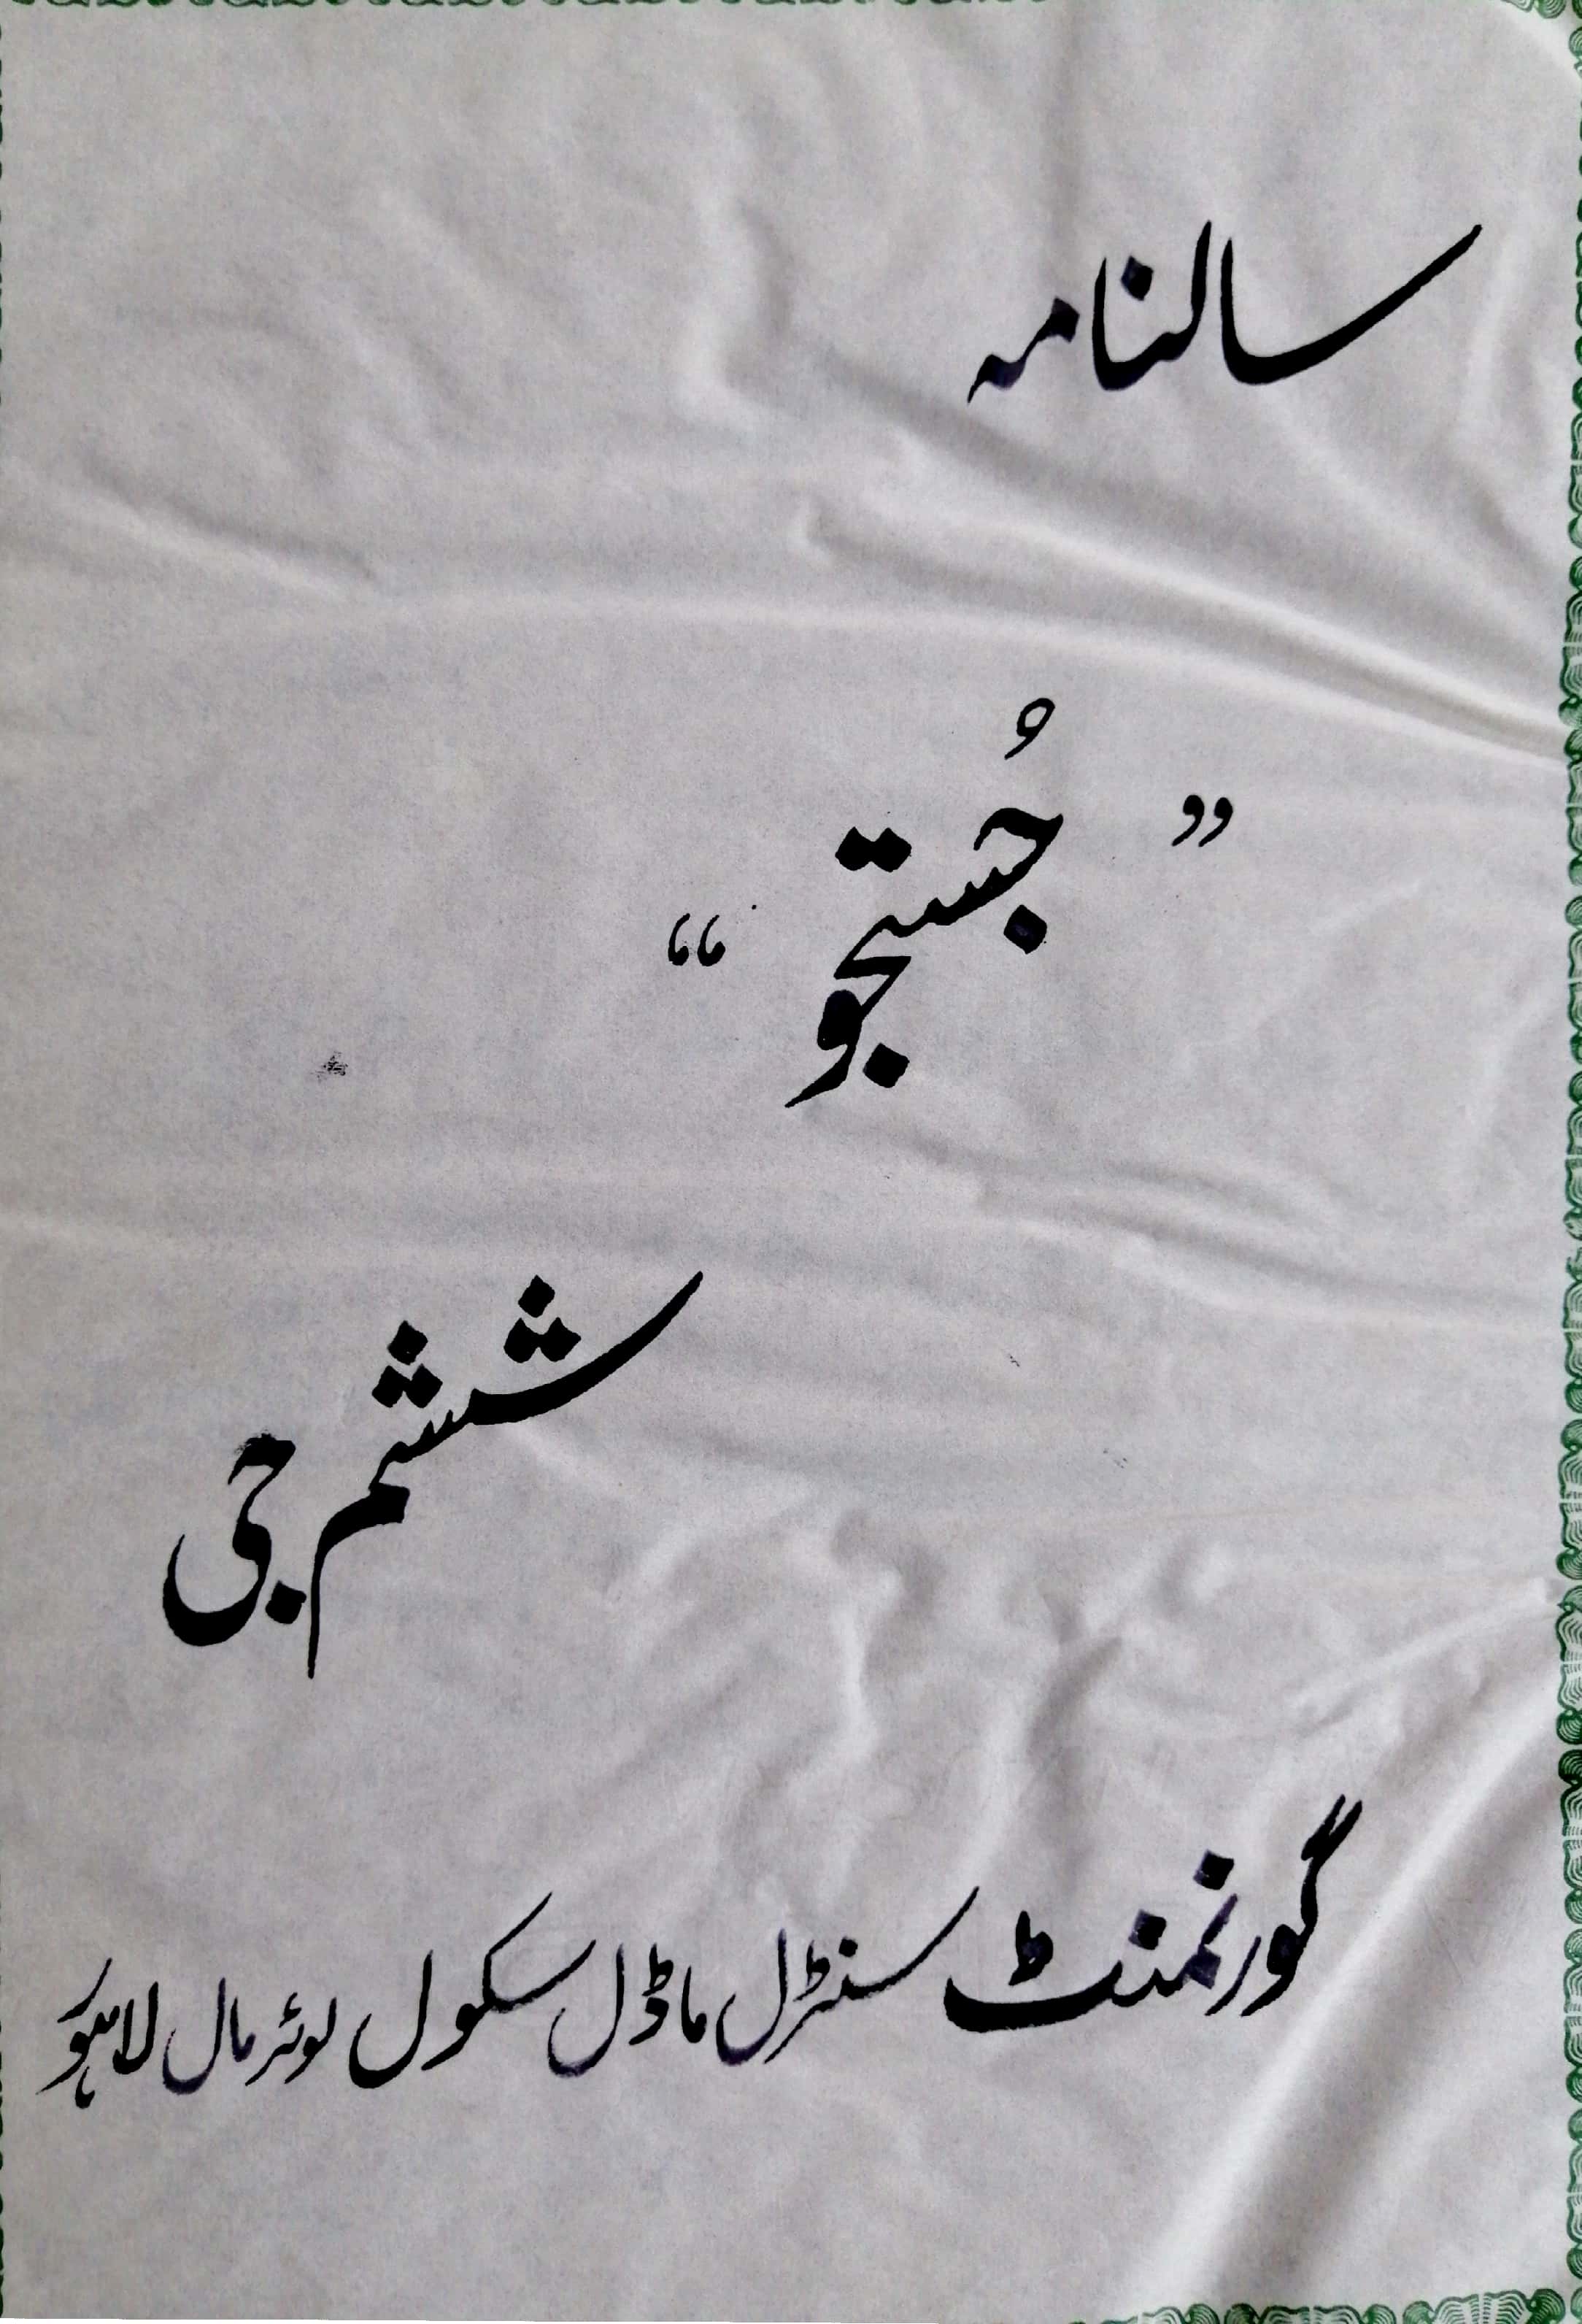 سالنامہ
” جُستجو “
ششم جی
گورنمنٹ سنٹرل ماڈل سکول لوئر مال لاہور